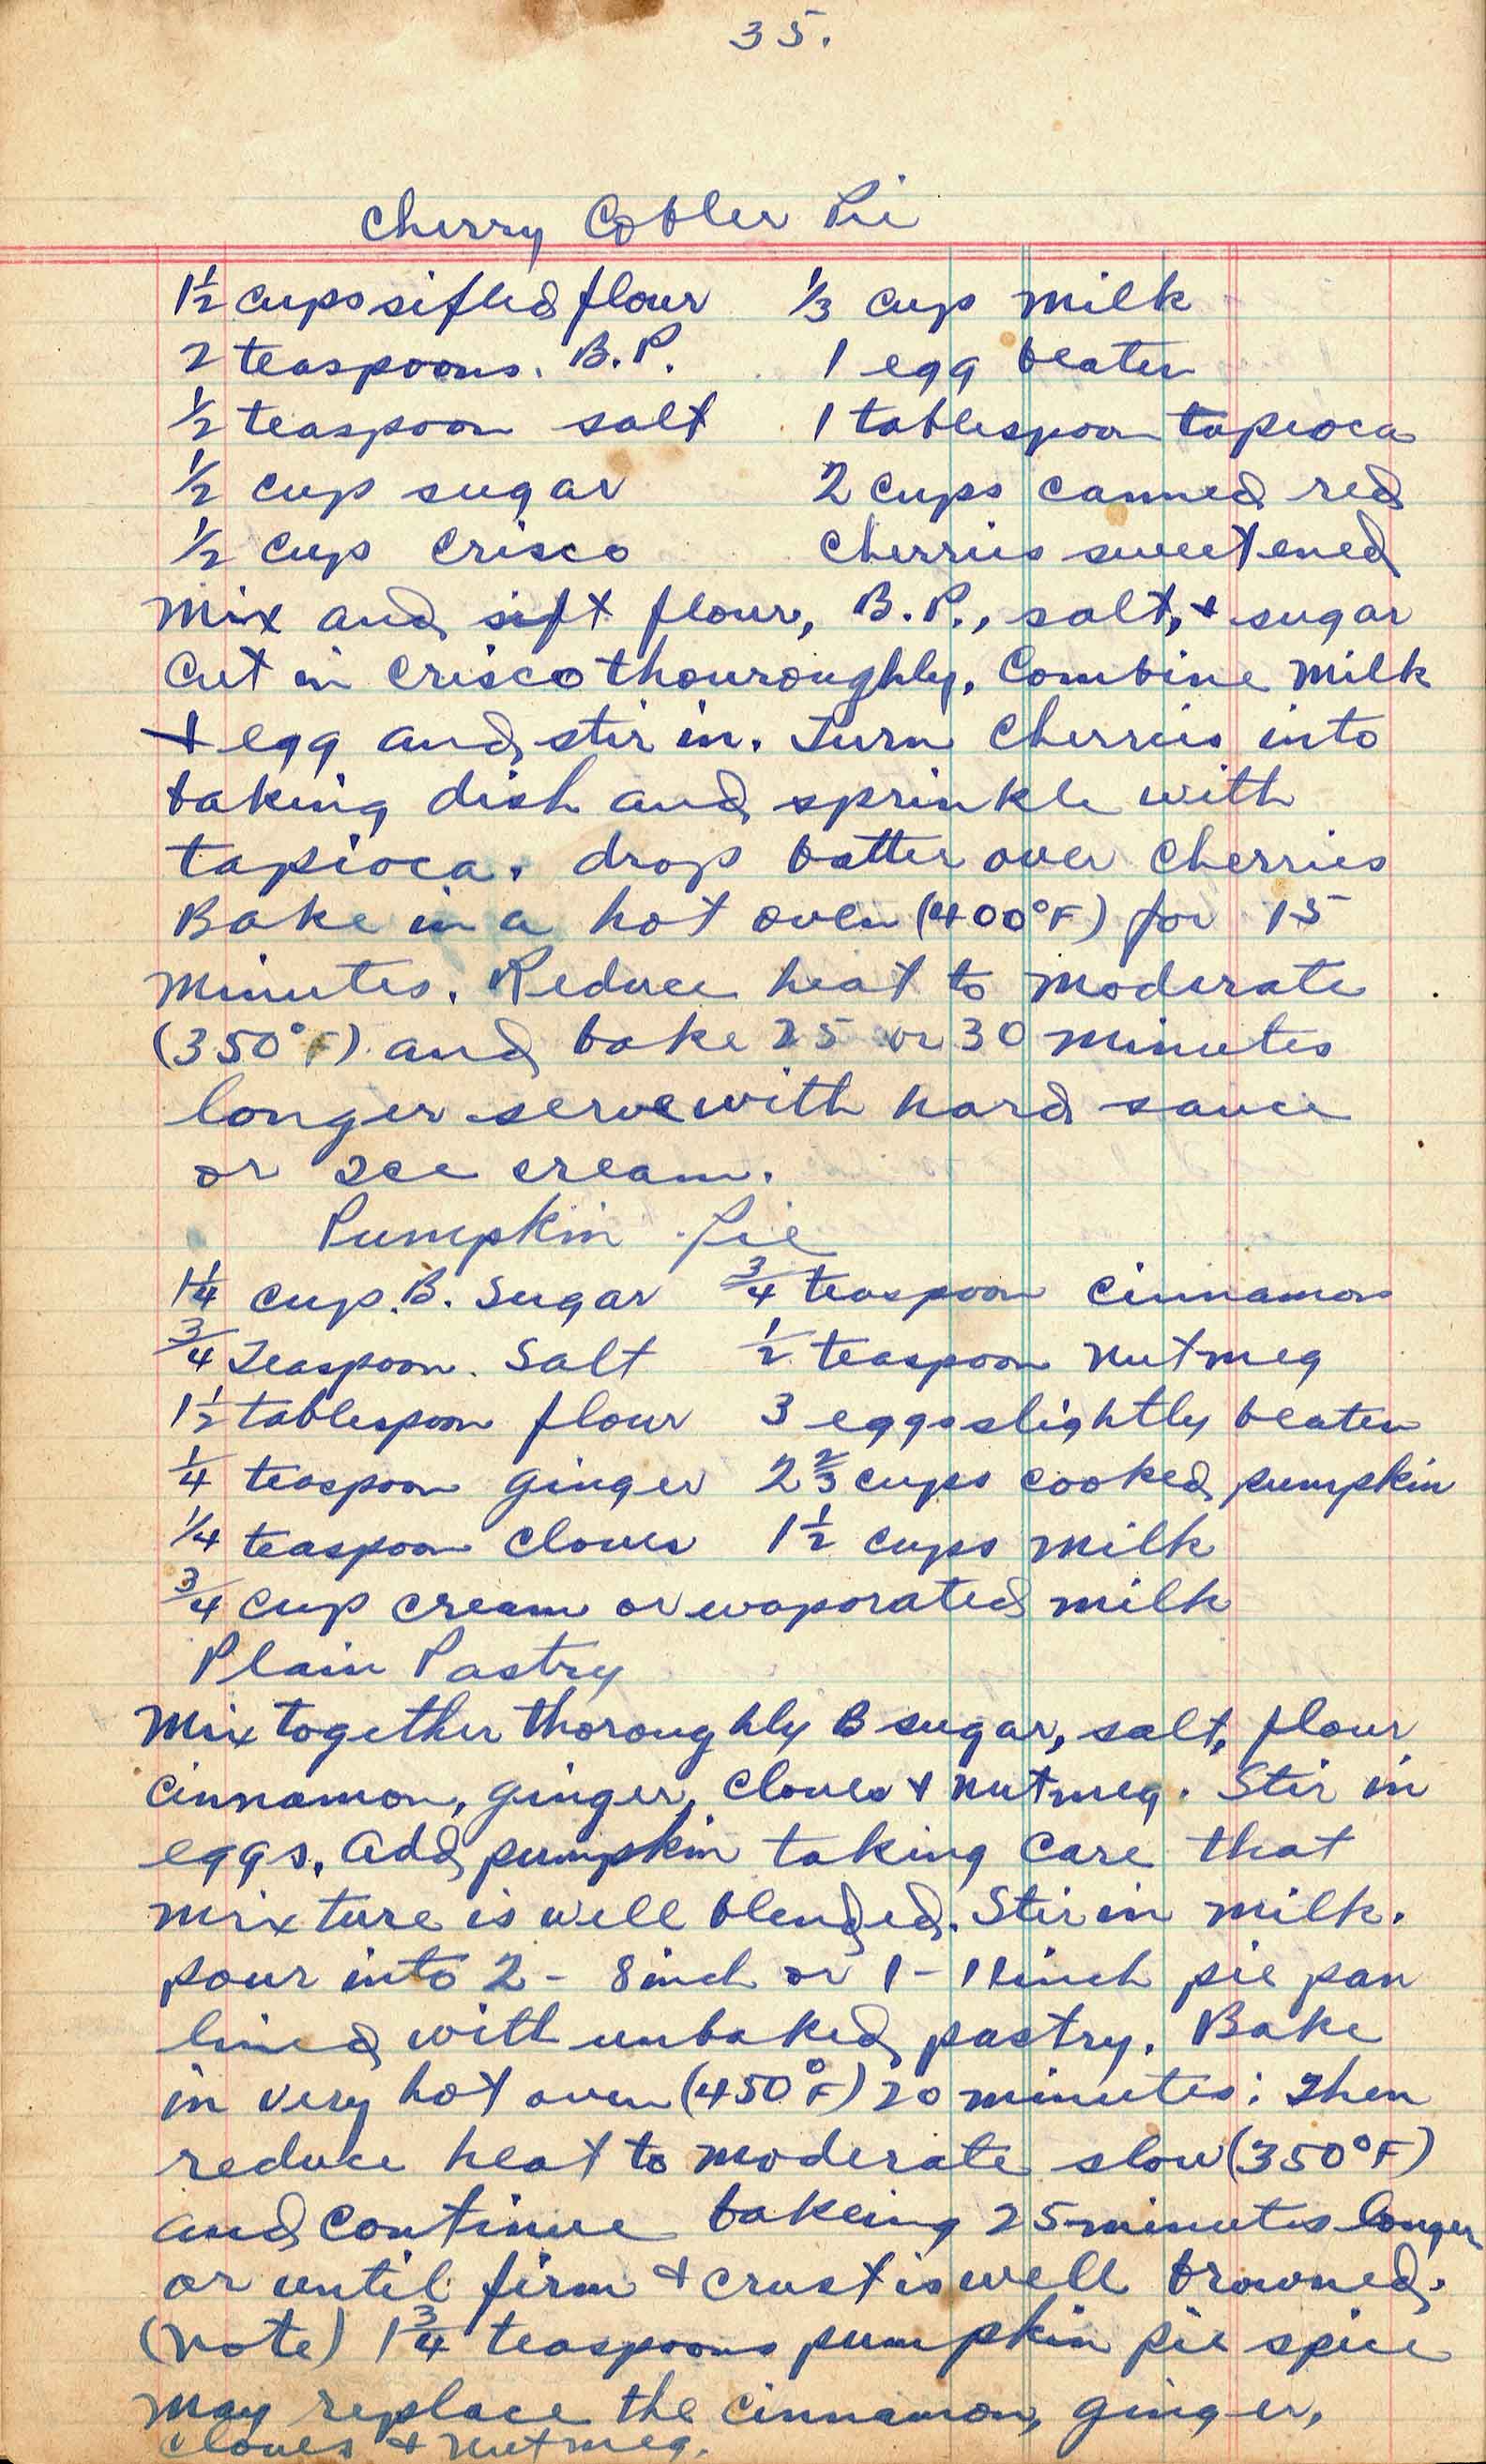 35.
Cherry Cobler Pie
1½ cups sifted flour ⅓ cup milk
2 teaspoons. B.P. 1 egg beaten
½ teaspoon salt 1 tablespoon tapioca
½ cup sugar 2 cups canned red
½ cup Crisco Cherries sweetened
Mix and sift flour, B.P., salt, + sugar
Cut in Crisco thouroughly. Combine Milk
+ egg and stir in. Turn Cherries into
baking dish and sprinkle with
tapioca. drop batter over Cherries
Bake in a hot oven (400°F) for 15
minutes. Reduce heat to moderate
(350°F) and bake 25 or 30 minutes
longer serve with hard sauce
or Ice cream.
Pumpkin Pie
1¼ cup. B. Sugar ¾ teaspoon Cinnamon
¾ Teaspoon. Salt ½ teaspoon Nutmeg
1½ tablespoon flour 3 eggs slightly beaten
¼ teaspoon ginger 2⅔ cups cooked pumpkin
¼ teaspoon Cloves 1½ cups milk
¾ cup cream or evaporated milk
Plain Pastry
Mix together thoroughly B sugar, salt, flour
Cinnamon, ginger, Cloves + Nutmeg. Stir in
eggs. Add pumpkin taking Care that
mixture is well blended. Stir in milk.
pour into 2 - 8 inch or 1 - 11 inch pie pan
lined with unbaked pastry. Bake
in very hot oven (450°F) 20 minutes: Then
reduce heat to moderate slow (350°F)
and Continue bakeing 25 minutes longer
or until firm + crust is well browned.
(Note) 1¾ teaspoons pumpkin pie spice
may replace the Cinnamon, ginger,
Cloves + Nutmeg.